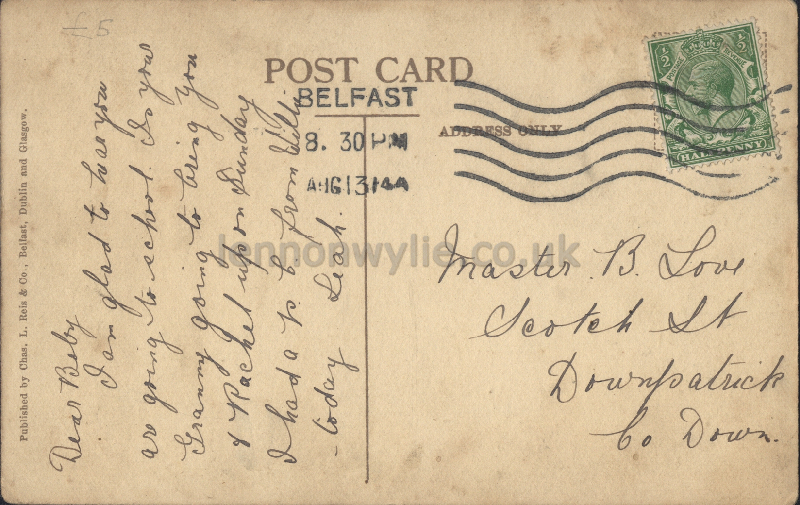 £5
POST CARD
ADDRESS ONLY
BELFAST
8. 30 PM
AUG 13 14
½ ½
POSTAGE REVENUE
HALFPENNY
Published by Chas. L. Reis & Co., Belfast, Dublin and Glasgow.
Dear Boby
I am glad to hear you
are going to school. Is your
Granny going to bring you
& Rachel up on Sunday
I had a p. c. from Willy
today Leah.
lennonwylie.co.uk
Master. B. Love
Scotch St
Downpatrick
Co Down.